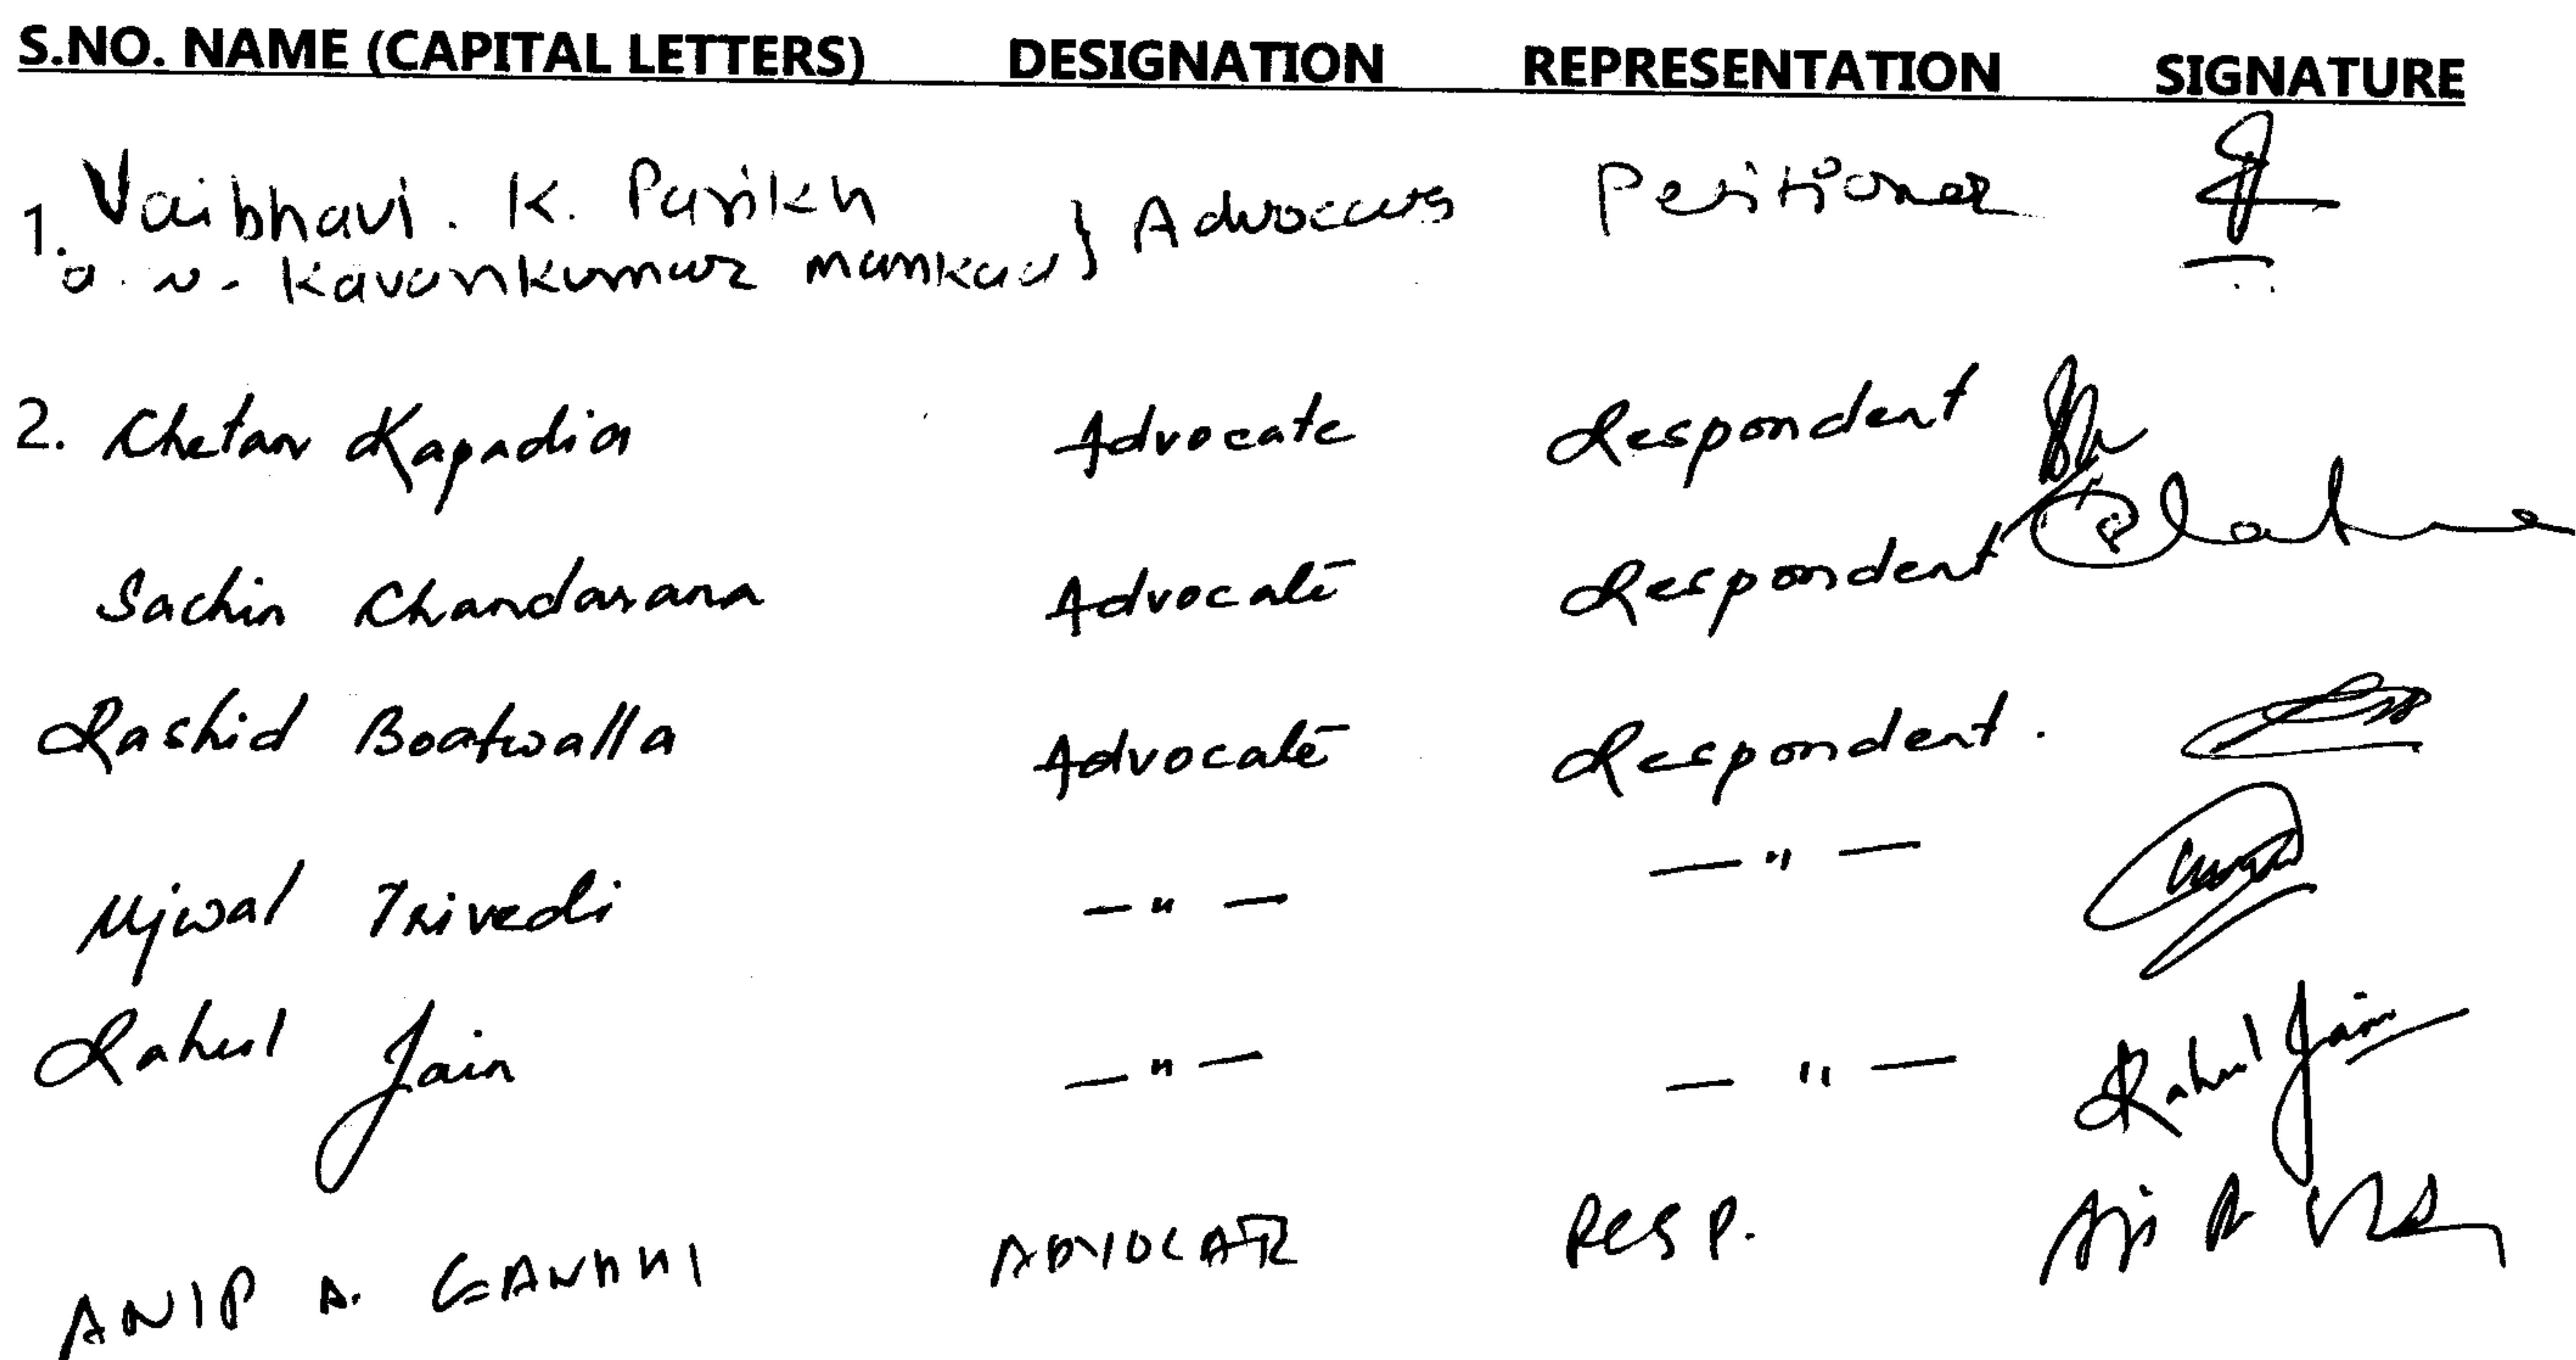 S.NO. NAME (CAPITAL LETTERS) DESIGNATION REPRESENTATION SIGNATURE
1. Vaibhavi. K. Parikh } Advocates Petitioner
a. w. Kavankumar Mankad
2. Chetan Kapadia Advocate Respondent
Sachin Chandarana Advocate Respondent
Rashid Boatwalla Advocate Respondent.
Ujwal Trivedi — " — — " —
Rahul Jain — " — — " — Rahul Jain
ANIP A. GANDHI ADVOCATE RESP.